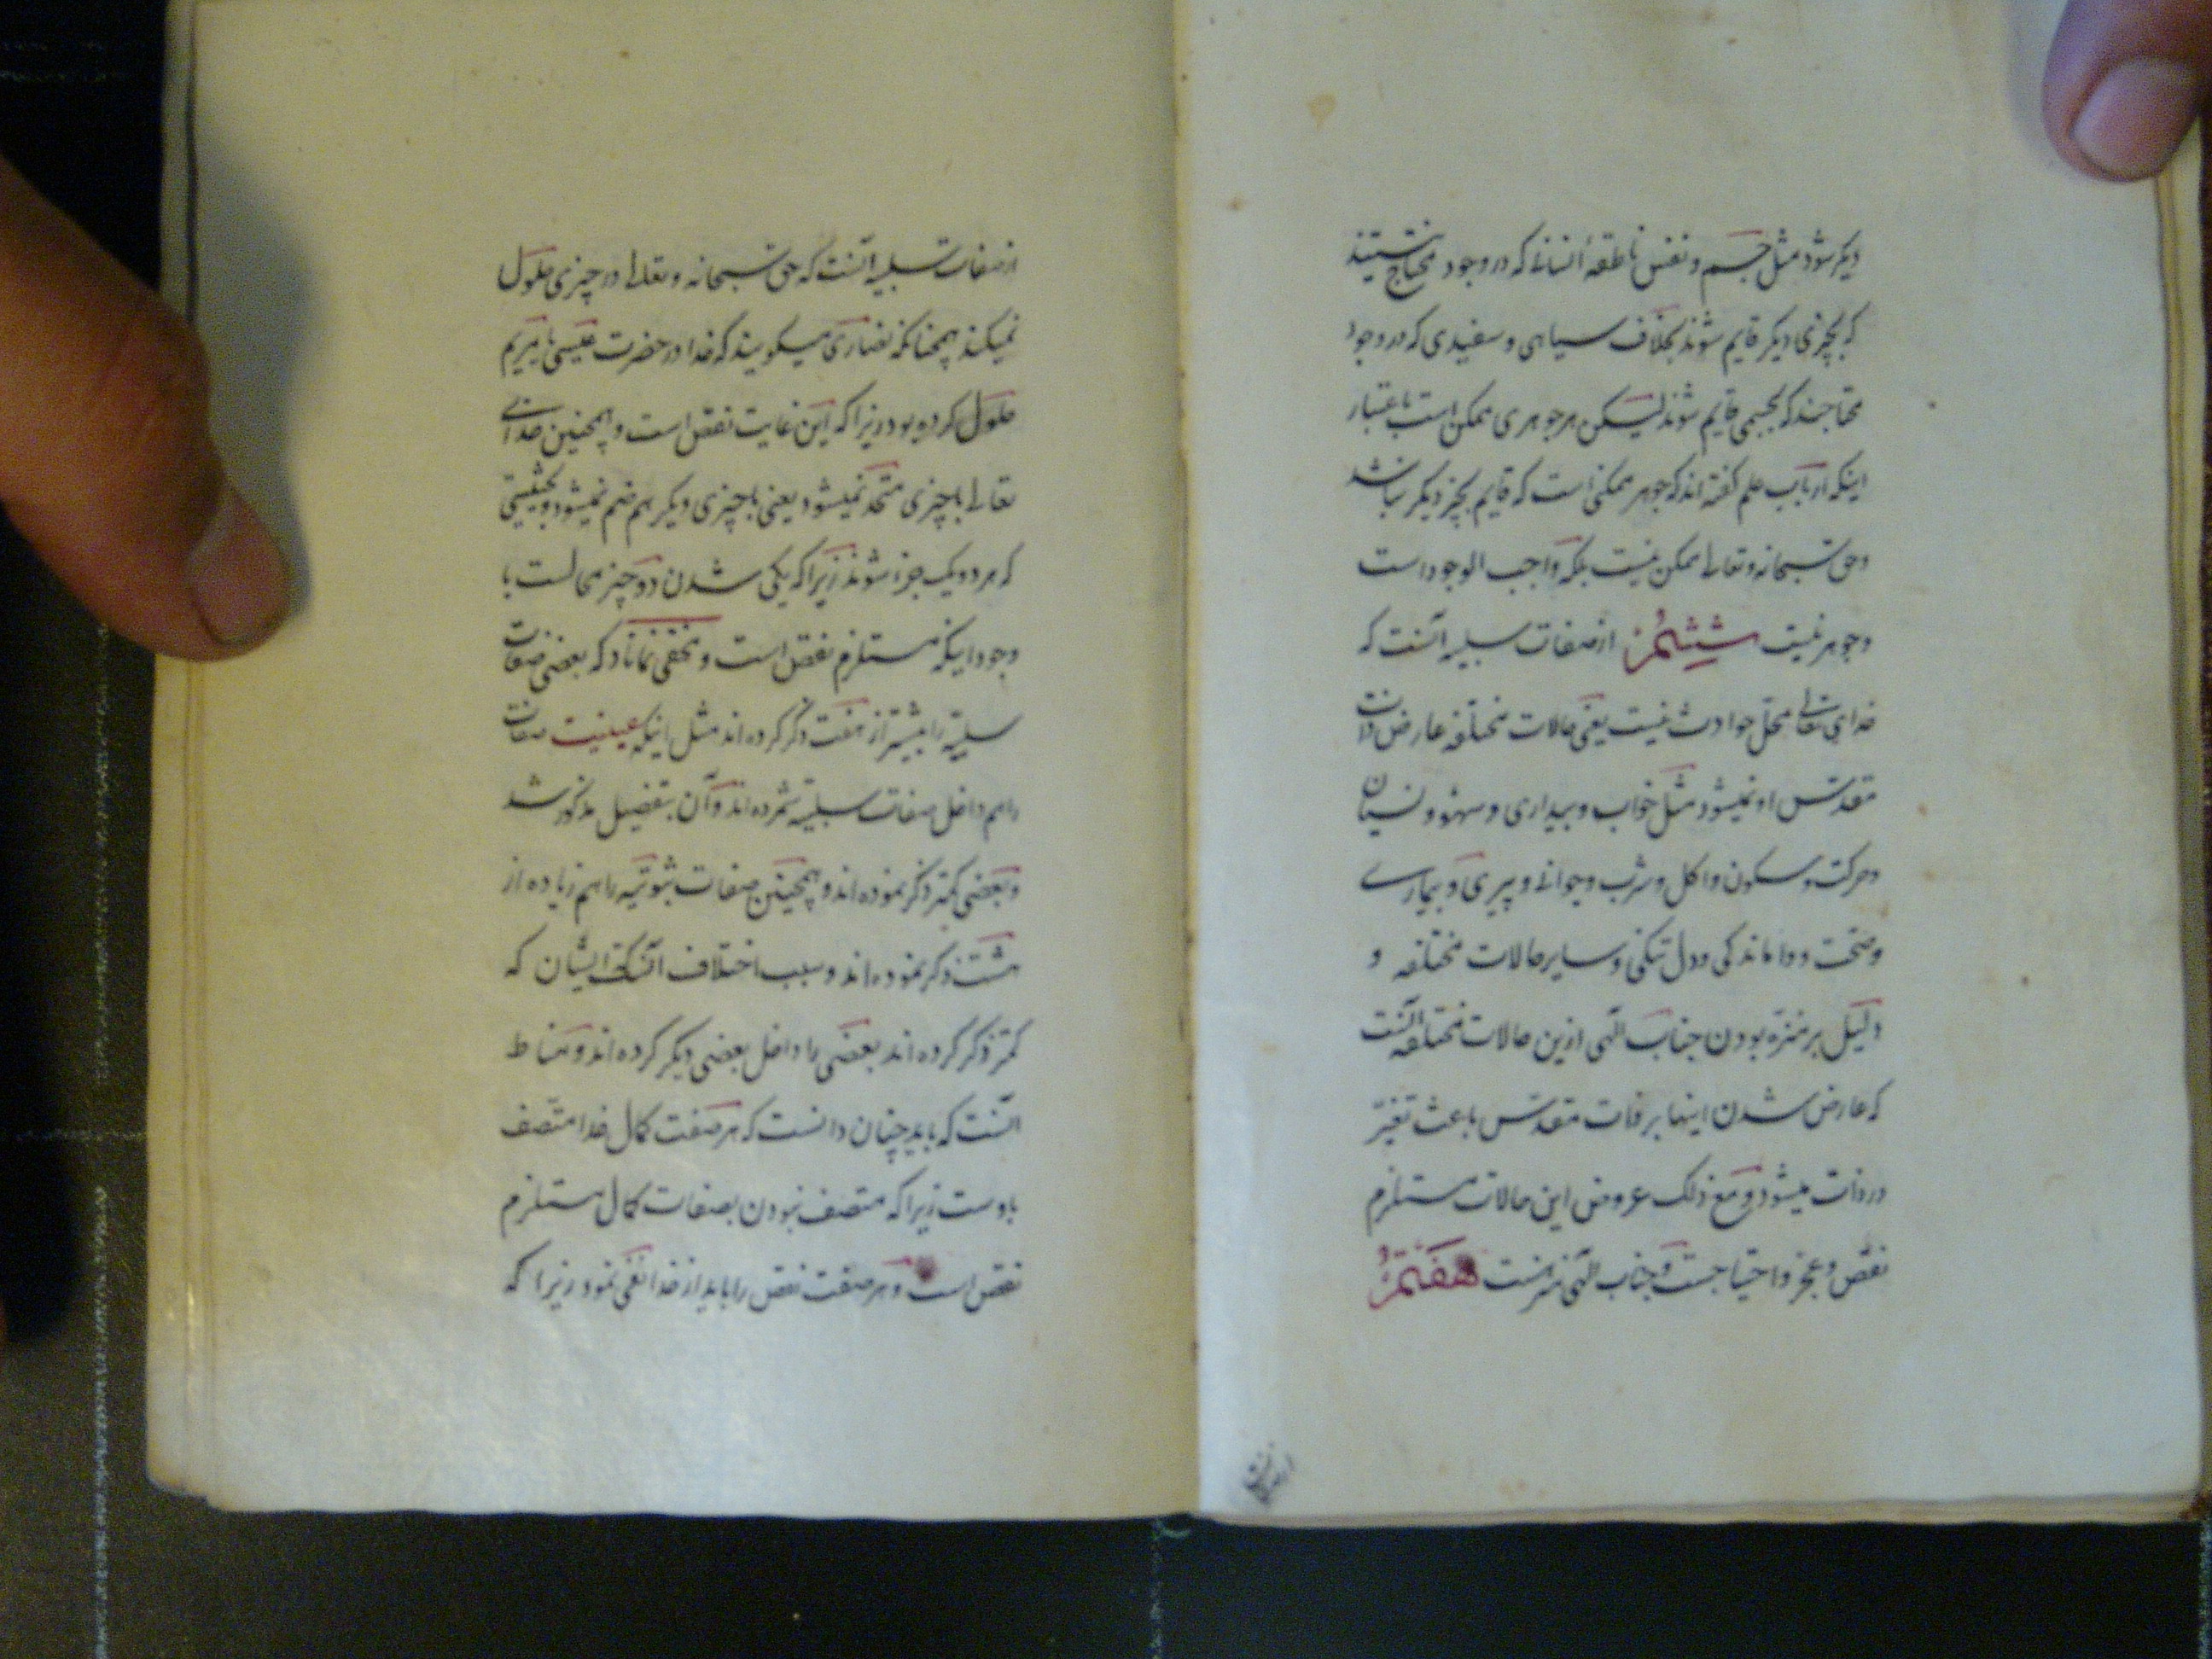 دیگر شود مثل جسم و نفس ناطقهٔ انسانی که در وجود محتاج نیستند
که بچیزی دیگر قایم شوند بخلاف سیاهی و سفیدی که در وجود
محتاجند که بجسمی قایم شوند لیکن هر جوهری ممکن است باعتبار
اینکه ارباب علم گفته اند که جوهر ممکنی است که قایم بچیز دیگر نباشد
و حق سبحانه و تعالی ممکن نیست بلکه واجب الوجود است
و جوهر نیست ششم از صفات سلبیه آنست که
خدای تعالی محل حوادث نیست یعنی حالات مختلفه عارض ذات
مقدس او نمیشود مثل خواب و بیداری و سهو و نسیان
و حرکت و سکون و اکل و شرب و جوانی و پیری و بیماری
و صحت و واماندگی و دل تنگی و سایر حالات مختلفه و
دلیل بر منزه بودن جناب الهی ازین حالات مختلفه آنست
که عارض شدن اینها بر ذات مقدس باعث تغیر
در ذات میشود و مع ذلک عروض این حالات مستلزم
نقص و عجز و احتیاجست و جناب الهی منزهست هفتم
از صفات سلبیه آنست که حق سبحانه و تعالی در چیزی حلول
نمیکند همچنانکه نصاری میگویند که خدا در حضرت عیسی یا مریم
حلول کرده بود زیرا که این غایت نقص است و همچنین خدای
تعالی با چیزی متحد نمیشود یعنی با چیزی دیگر هم ضم نمیشود بحیثیتی
که هر دو یک جزء شوند زیرا که یکی شدن دو چیز محالست با
وجود اینکه مستلزم نقص است و مخفی نماناد که بعضی صفات
سلبیه را بیشتر از هفت ذکر کرده اند مثل اینکه عینیت صفات
را هم داخل صفات سلبیه شمرده اند و آن بتفصیل مذکور شد
و بعضی کمتر ذکر نموده اند و همچنین صفات ثبوتیه را هم زیاده از
هشت ذکر نموده اند و سبب اختلاف آنکه ایشان که
کمتر ذکر کرده اند بعضی را داخل بعضی دیگر کرده اند و مناط
آنست که باید چنان دانست که هر صفت کمال خدا متصف
باوست زیرا که متصف نبودن بصفات کمال مستلزم
نقص است و هر صفت نقص را باید از خدا نفی نمود زیرا که